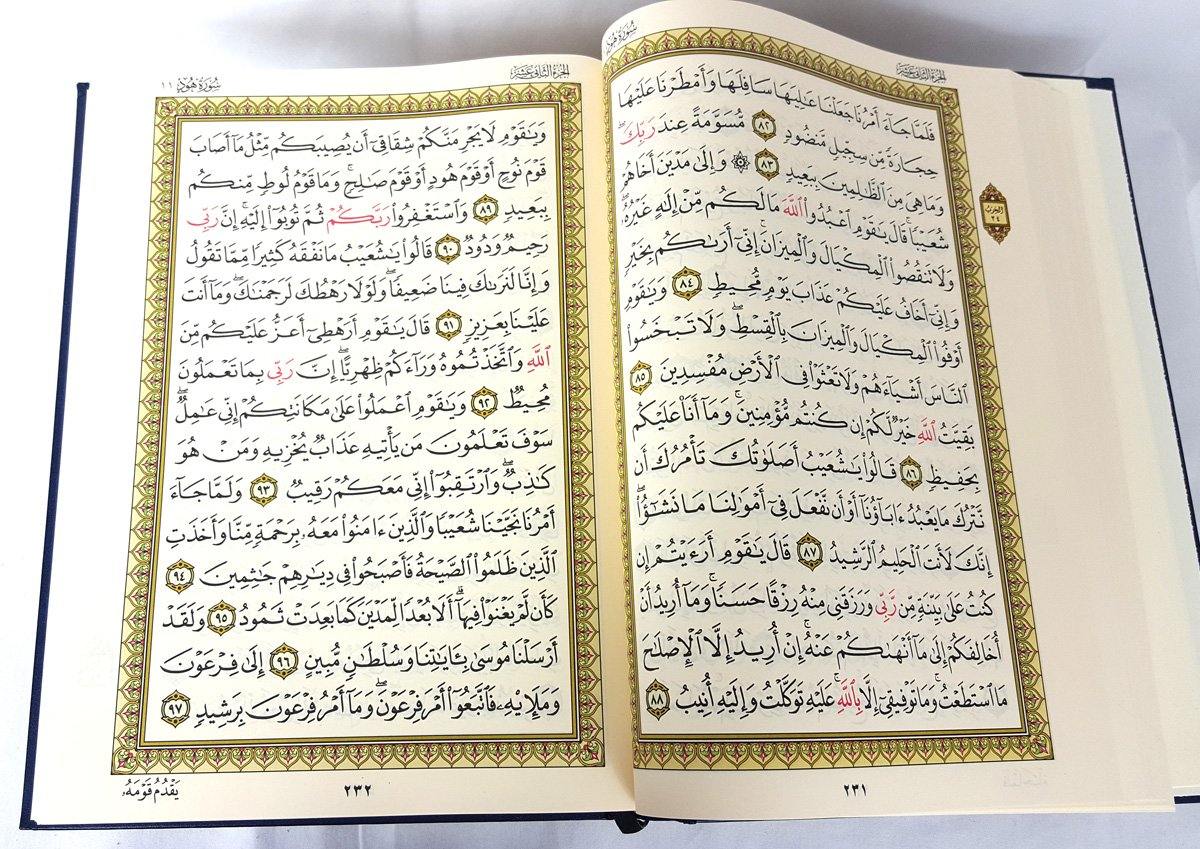 الجزء الثاني عشر
سُورَةُ هُودٍ
فَلَمَّا جَآءَ أَمْرُنَا جَعَلْنَا عَٰلِيَهَا سَافِلَهَا وَأَمْطَرْنَا عَلَيْهَا
حِجَارَةً مِّن سِجِّيلٍ مَّنضُودٍ ٨٢ مُّسَوَّمَةً عِندَ رَبِّكَۖ
وَمَا هِيَ مِنَ ٱلظَّٰلِمِينَ بِبَعِيدٍ ٨٣ ۞ وَإِلَىٰ مَدْيَنَ أَخَاهُمْ
شُعَيْبًاۚ قَالَ يَٰقَوْمِ ٱعْبُدُوا۟ ٱللَّهَ مَا لَكُم مِّنْ إِلَٰهٍ غَيْرُهُۥۖ
وَلَا تَنقُصُوا۟ ٱلْمِكْيَالَ وَٱلْمِيزَانَۚ إِنِّىٓ أَرَىٰكُم بِخَيْرٍ
وَإِنِّىٓ أَخَافُ عَلَيْكُمْ عَذَابَ يَوْمٍ مُّحِيطٍ ٨٤ وَيَٰقَوْمِ
أَوْفُوا۟ ٱلْمِكْيَالَ وَٱلْمِيزَانَ بِٱلْقِسْطِۖ وَلَا تَبْخَسُوا۟
ٱلنَّاسَ أَشْيَآءَهُمْ وَلَا تَعْثَوْا۟ فِى ٱلْأَرْضِ مُفْسِدِينَ ٨٥
بَقِيَّتُ ٱللَّهِ خَيْرٌ لَّكُمْ إِن كُنتُم مُّؤْمِنِينَۚ وَمَآ أَنَا۠ عَلَيْكُم
بِحَفِيظٍ ٨٦ قَالُوا۟ يَٰشُعَيْبُ أَصَلَوٰتُكَ تَأْمُرُكَ أَن
نَّتْرُكَ مَا يَعْبُدُ ءَابَآؤُنَآ أَوْ أَن نَّفْعَلَ فِىٓ أَمْوَٰلِنَا مَا نَشَٰٓؤُا۟ۖ
إِنَّكَ لَأَنتَ ٱلْحَلِيمُ ٱلرَّشِيدُ ٨٧ قَالَ يَٰقَوْمِ أَرَءَيْتُمْ إِن
كُنتُ عَلَىٰ بَيِّنَةٍ مِّن رَّبِّى وَرَزَقَنِى مِنْهُ رِزْقًا حَسَنًاۚ وَمَآ أُرِيدُ أَنْ
أُخَالِفَكُمْ إِلَىٰ مَآ أَنْهَىٰكُمْ عَنْهُۚ إِنْ أُرِيدُ إِلَّا ٱلْإِصْلَٰحَ
مَا ٱسْتَطَعْتُۚ وَمَا تَوْفِيقِىٓ إِلَّا بِٱللَّهِۚ عَلَيْهِ تَوَكَّلْتُ وَإِلَيْهِ أُنِيبُ ٨٨
الحزب
٢٤
٢٣١
الجزء الثاني عشر
سُورَةُ هُودٍ ١١
وَيَٰقَوْمِ لَا يَجْرِمَنَّكُمْ شِقَاقِىٓ أَن يُصِيبَكُم مِّثْلُ مَآ أَصَابَ
قَوْمَ نُوحٍ أَوْ قَوْمَ هُودٍ أَوْ قَوْمَ صَٰلِحٍۚ وَمَا قَوْمُ لُوطٍ مِّنكُم
بِبَعِيدٍ ٨٩ وَٱسْتَغْفِرُوا۟ رَبَّكُمْ ثُمَّ تُوبُوٓا۟ إِلَيْهِۚ إِنَّ رَبِّى
رَحِيمٌ وَدُودٌ ٩٠ قَالُوا۟ يَٰشُعَيْبُ مَا نَفْقَهُ كَثِيرًا مِّمَّا تَقُولُ
وَإِنَّا لَنَرَىٰكَ فِينَا ضَعِيفًاۖ وَلَوْلَا رَهْطُكَ لَرَجَمْنَٰكَۖ وَمَآ أَنتَ
عَلَيْنَا بِعَزِيزٍ ٩١ قَالَ يَٰقَوْمِ أَرَهْطِىٓ أَعَزُّ عَلَيْكُم مِّنَ
ٱللَّهِ وَٱتَّخَذْتُمُوهُ وَرَآءَكُمْ ظِهْرِيًّاۖ إِنَّ رَبِّى بِمَا تَعْمَلُونَ
مُحِيطٌ ٩٢ وَيَٰقَوْمِ ٱعْمَلُوا۟ عَلَىٰ مَكَانَتِكُمْ إِنِّى عَٰمِلٌۖ
سَوْفَ تَعْلَمُونَ مَن يَأْتِيهِ عَذَابٌ يُخْزِيهِ وَمَنْ هُوَ
كَٰذِبٌۖ وَٱرْتَقِبُوٓا۟ إِنِّى مَعَكُمْ رَقِيبٌ ٩٣ وَلَمَّا جَآءَ
أَمْرُنَا نَجَّيْنَا شُعَيْبًا وَٱلَّذِينَ ءَامَنُوا۟ مَعَهُۥ بِرَحْمَةٍ مِّنَّا وَأَخَذَتِ
ٱلَّذِينَ ظَلَمُوا۟ ٱلصَّيْحَةُ فَأَصْبَحُوا۟ فِى دِيَٰرِهِمْ جَٰثِمِينَ ٩٤
كَأَن لَّمْ يَغْنَوْا۟ فِيهَآۗ أَلَا بُعْدًا لِّمَدْيَنَ كَمَا بَعِدَتْ ثَمُودُ ٩٥ وَلَقَدْ
أَرْسَلْنَا مُوسَىٰ بِـَٔايَٰتِنَا وَسُلْطَٰنٍ مُّبِينٍ ٩٦ إِلَىٰ فِرْعَوْنَ
وَمَلَإِي۟هِۦ فَٱتَّبَعُوٓا۟ أَمْرَ فِرْعَوْنَۖ وَمَآ أَمْرُ فِرْعَوْنَ بِرَشِيدٍ ٩٧
٢٣٢
يَقْدُمُ قَوْمَهُۥ